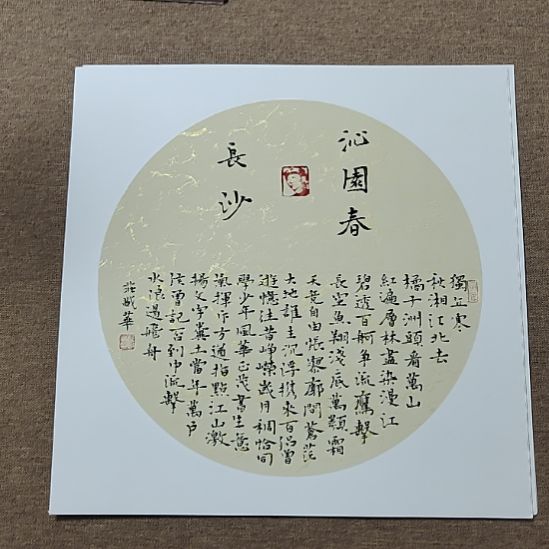 沁園春
長沙
獨立寒
秋湘江北去
橘子洲頭看萬山
紅遍層林盡染漫江
碧透百舸爭流鷹擊
長空魚翔淺底萬類霜
天競自由悵寥廓問蒼茫
大地誰主沉浮携來百侣曾
遊憶往昔崢嶸歲月稠恰同
學少年風華正茂書生意
氣揮斥方遒指點江山激
揚文字糞土當年萬戶
侯曾記否到中流擊
水浪遏飛舟
威華